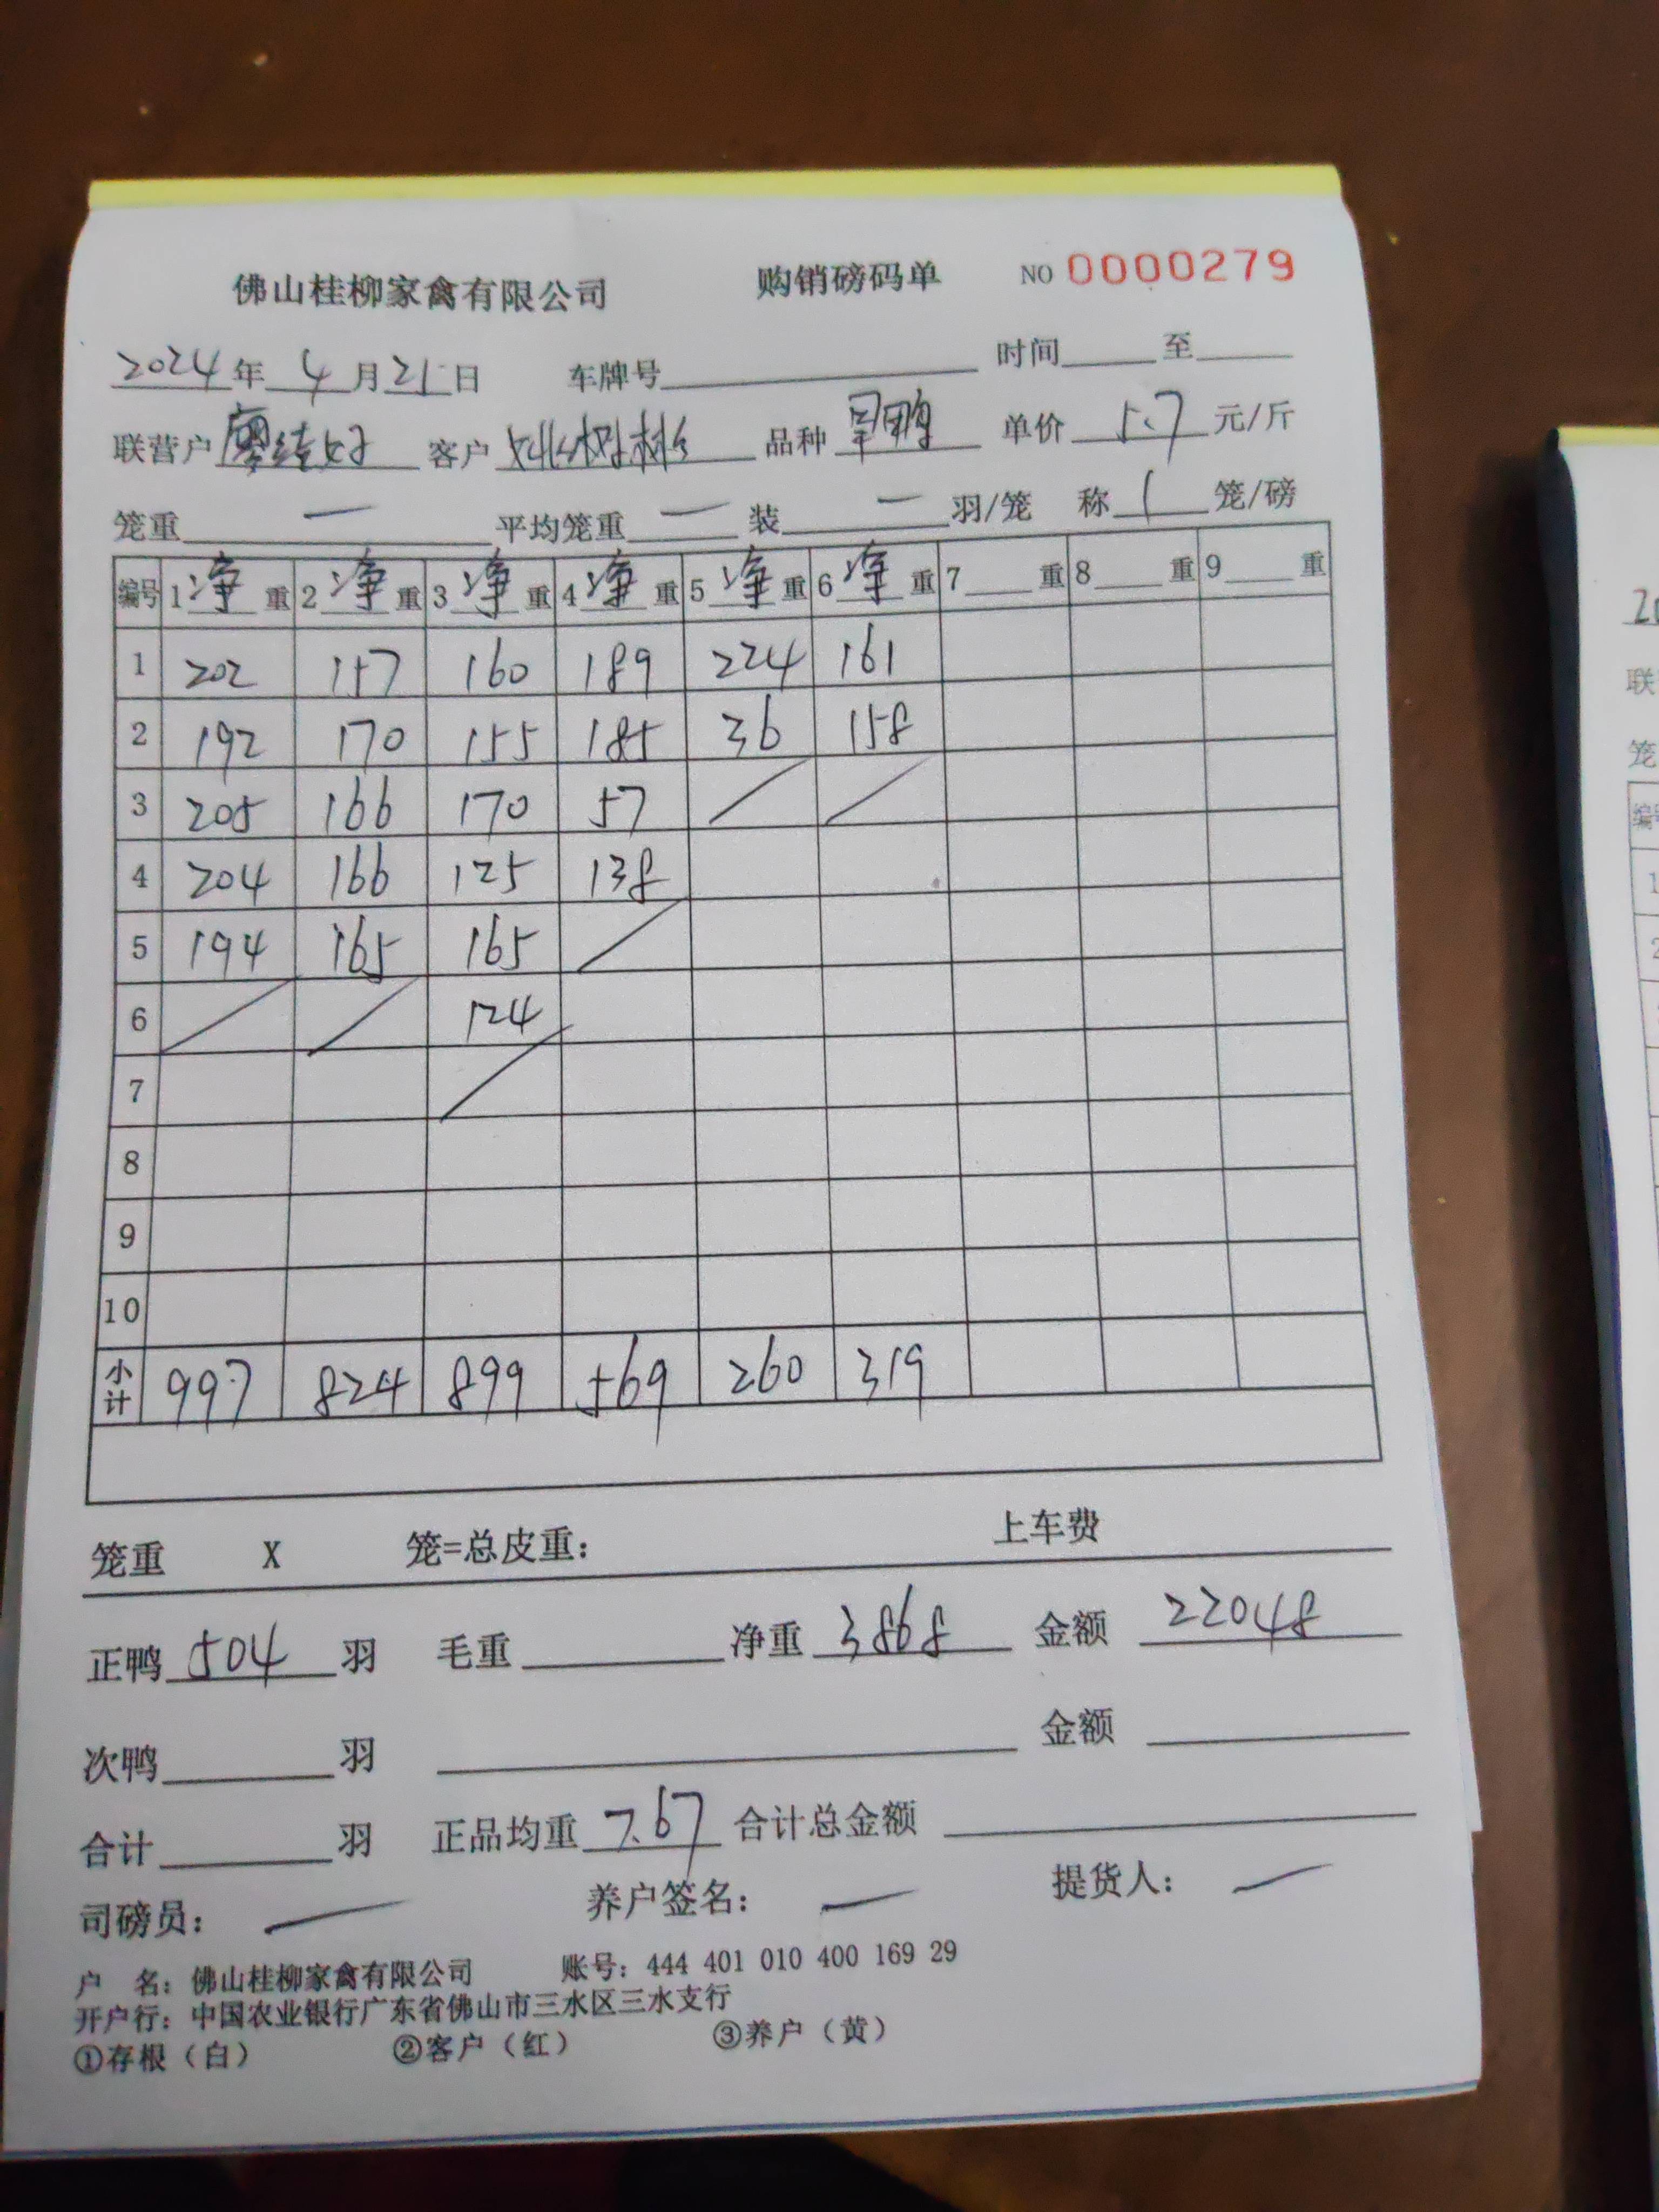 佛山桂柳家禽有限公司 购销磅码单 NO 0000279
2024年 4月21日 车牌号 时间 至
联营户 廖 好 客户 姚树彬 品种 单价 5.7 元/斤
笼重 — 平均笼重 — 装 — 羽/笼 称 1 笼/磅
编号 1 净 重 2 净 重 3 净 重 4 净 重 5 净 重 6 净 重 7 重 8 重 9 重
1 202 157 160 189 224 161
2 192 170 155 185 36 158
3 205 166 170 57
4 204 166 125 138
5 194 165 165
6 124
7
8
9
10
小计 997 824 899 569 260 319
笼重 X 笼=总皮重: 上车费
正鸭 504 羽 毛重 净重 3868 金额 22048
次鸭 羽 金额
合计 羽 正品均重 7.67 合计总金额
司磅员: — 养户签名: — 提货人: —
户 名: 佛山桂柳家禽有限公司 账号: 444 401 010 400 169 29
开户行: 中国农业银行广东省佛山市三水区三水支行
①存根（白） ②客户（红） ③养户（黄）